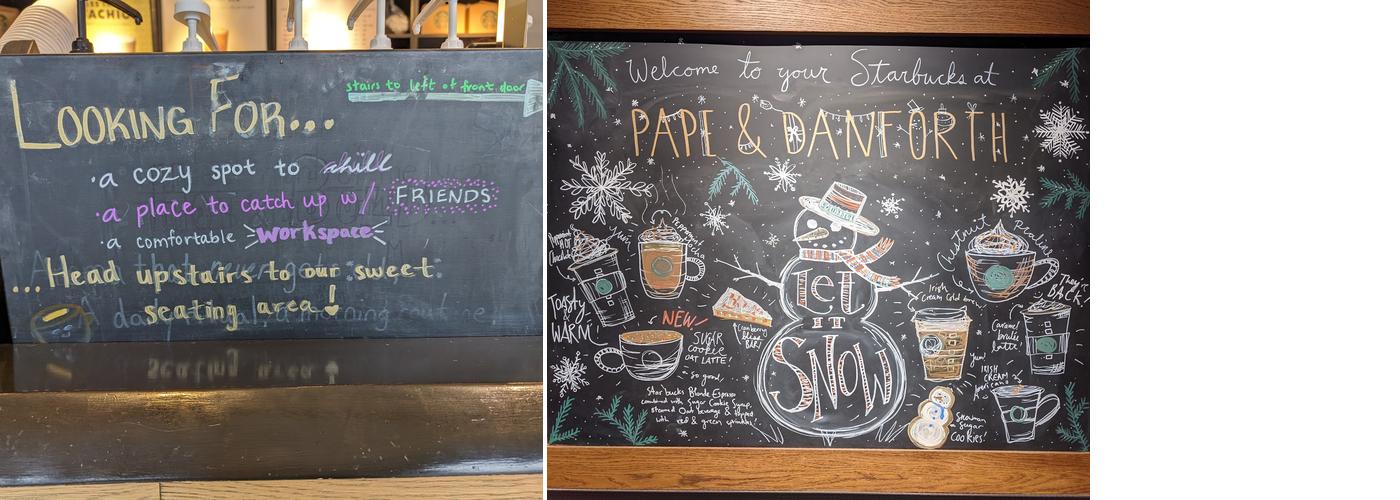 stairs to left of front door
LOOKING FOR...
· a cozy spot to chill
· a place to catch up w/ FRIENDS
· a comfortable workspace
...Head upstairs to our sweet
seating area!
Welcome to your Starbucks at
PAPE & DANFORTH
Peppermint
Hot
Chocolate
Yum
Peppermint
Mocha
Chestnut Praline
TOASTY
WARM!
NEW!
SUGAR
cookie
OAT LATTE!
so good
Starbucks Blonde Espresso
combined with Sugar Cookie Syrup,
steamed Oat beverage & topped
with red & green sprinkles!
Cranberry
bliss
BAR!
Let
IT
SNOW
Irish
Cream Cold brew
They're
BACK!
Caramel
brulée
latte!
Yum!
IRISH
CREAM
Snowman
Sugar
Cookies!